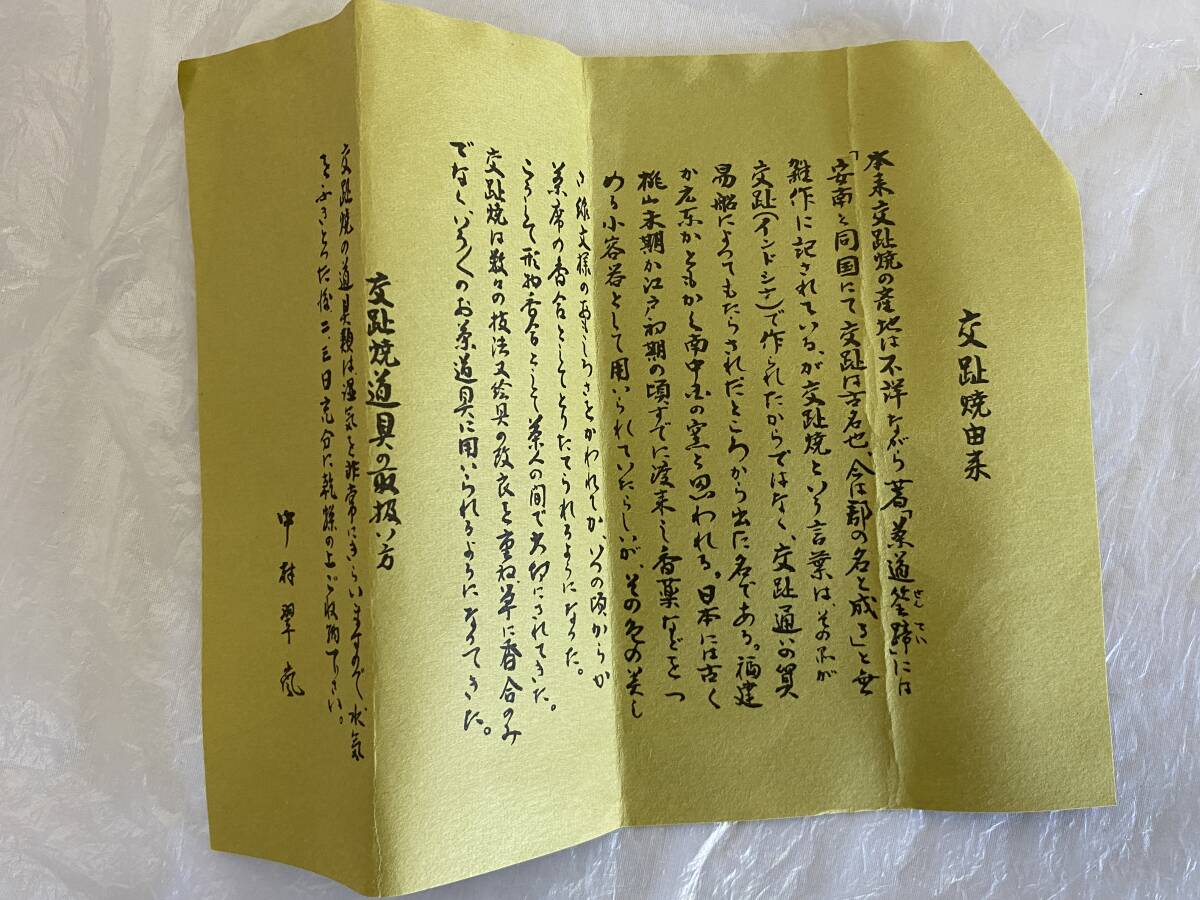 交趾焼由来
本来交趾焼の産地は不詳ながら著「茶道筌蹄」には
せんてい
「安南と同国にて交趾は古名也、今は郡の名と成る」と
雑作に記されている、が交趾焼という言葉は、その品が
交趾(インドシナ)で作られたからではなく、交趾通いの貿
易船によってもたらされたところから出た名である。福建
か広東かともかく南中国の窯と思われる。日本には古く
桃山末期か江戸初期の頃すでに渡来し香薬などをつ
める小容器として用いられていたらしいが、その色の美し
さ線文様のおもしろさをかわれてか、いつの頃からか
茶席の香合としてとりたてられるようになった。
こうして形物香合として茶人の間で大切にされてきた。
交趾焼は数々の技法又絵具の改良を重ね、単に香合のみ
でなくいろ〱のお茶道具に用いられるようになってきた。
交趾焼道具の取扱い方
交趾焼の道具類は湿気を非常にきらいますので、水気
をふきとった後二、三日充分に乾燥の上ご収納下さい。
中村翠嵐